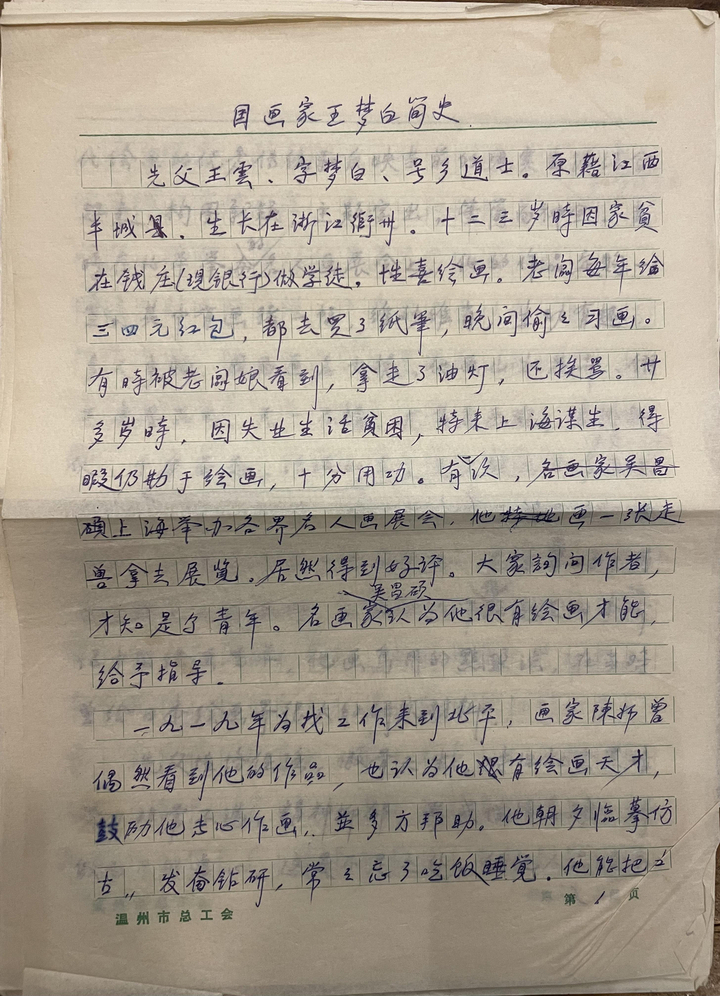 国画家王梦白简史
先父王雲、字梦白、号乡道士。原籍江西
丰城县．生长在浙江衢州．十二三岁時因家貧
在钱庄(現银行)做学徒．性喜绘画。老闆每年给
三四元红包，都去買了纸筆，晚间偷々习画。
有時被老闆娘看到，拿走了油灯，还挨罵。廿
多岁時，因失业生活貧困，特来上海谋生．得
暇仍勤于绘画，十分用功。有次，名画家吴昌
碩上海举办各界名人画展会．他特地画一张走
兽拿去展览。居然得到好评。大家詢问作者，
才知是个青年。名画家吴昌硕认为他很有绘画才能，
给予指导．
一九一九年为找工作来到北平，画家陳师曾
偶然看到他的作品，也认为他很有绘画天才，
鼓励他专心作画，並多方邦助。他朝夕临摹仿
古，发奋钻研，常々忘了吃饭睡觉．他能把古
温州市总工会
第 1 页